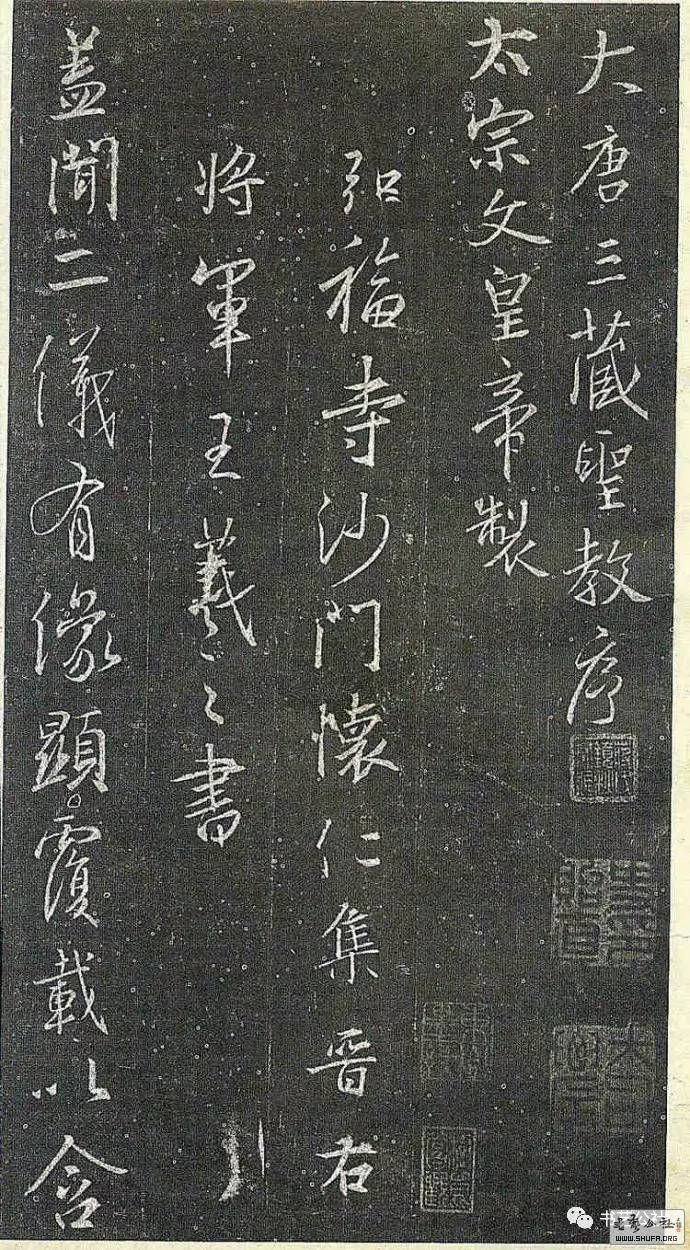 大唐三藏聖教序
太宗文皇帝製
弘福寺沙門懷仁集晉右
將軍王羲之書
蓋聞二儀有像顯覆載以含
书艺公社
WWW.SHUFA.ORG